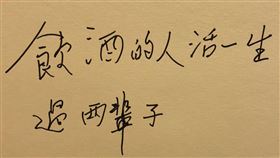 飲酒的人活一生
過兩輩子